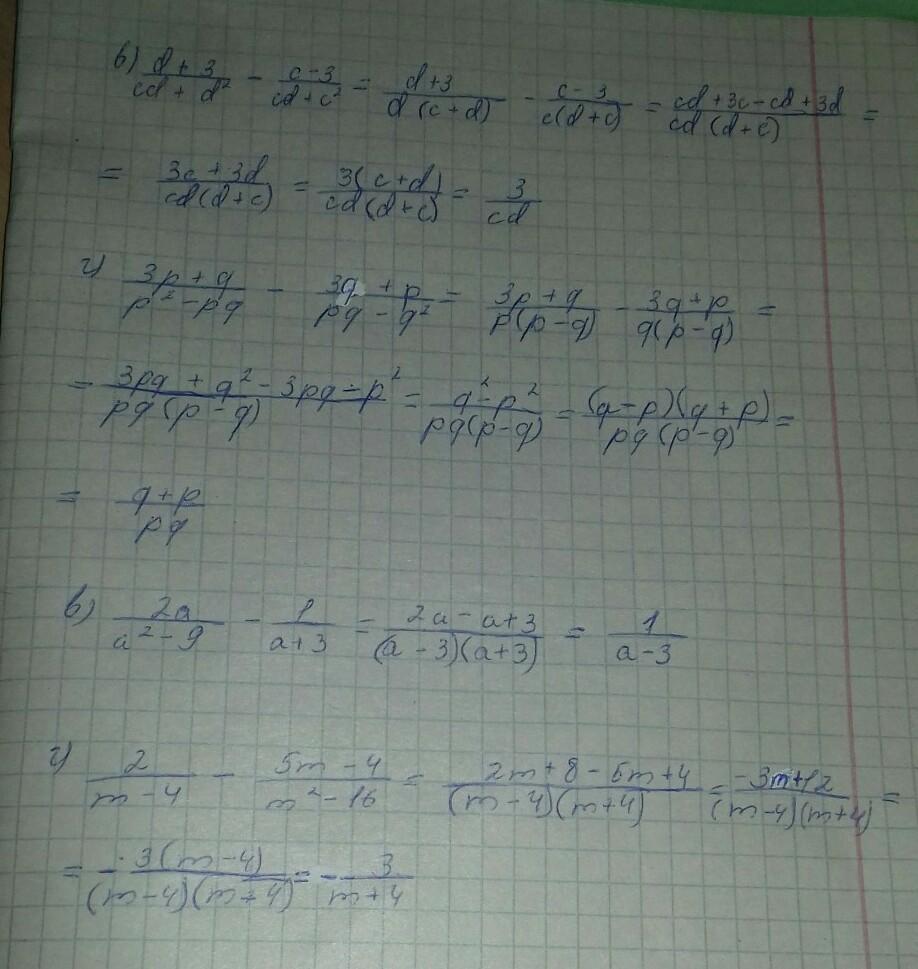 в) (d+3)/(cd+d²) - (c-3)/(cd+c²) = (d+3)/(d(c+d)) - (c-3)/(c(d+c)) = (cd+3c-cd+3d)/(cd(d+c)) =
= (3c+3d)/(cd(d+c)) = (3(c+d))/(cd(d+c)) = 3/(cd)
г) (3p+q)/(p²-pq) - (3q+p)/(pq-q²) = (3p+q)/(p(p-q)) - (3q+p)/(q(p-q)) =
= (3pq+q²-3pq-p²)/(pq(p-q)) = (q²-p²)/(pq(p-q)) = ((q-p)(q+p))/(pq(p-q)) =
= (q+p)/(pq)
в) (2a)/(a²-9) - 1/(a+3) = (2a-a+3)/((a-3)(a+3)) = 1/(a-3)
г) 2/(m-4) - (5m-4)/(m²-16) = (2m+8-5m+4)/((m-4)(m+4)) = (-3m+12)/((m-4)(m+4)) =
= (-3(m-4))/((m-4)(m+4)) = - 3/(m+4)